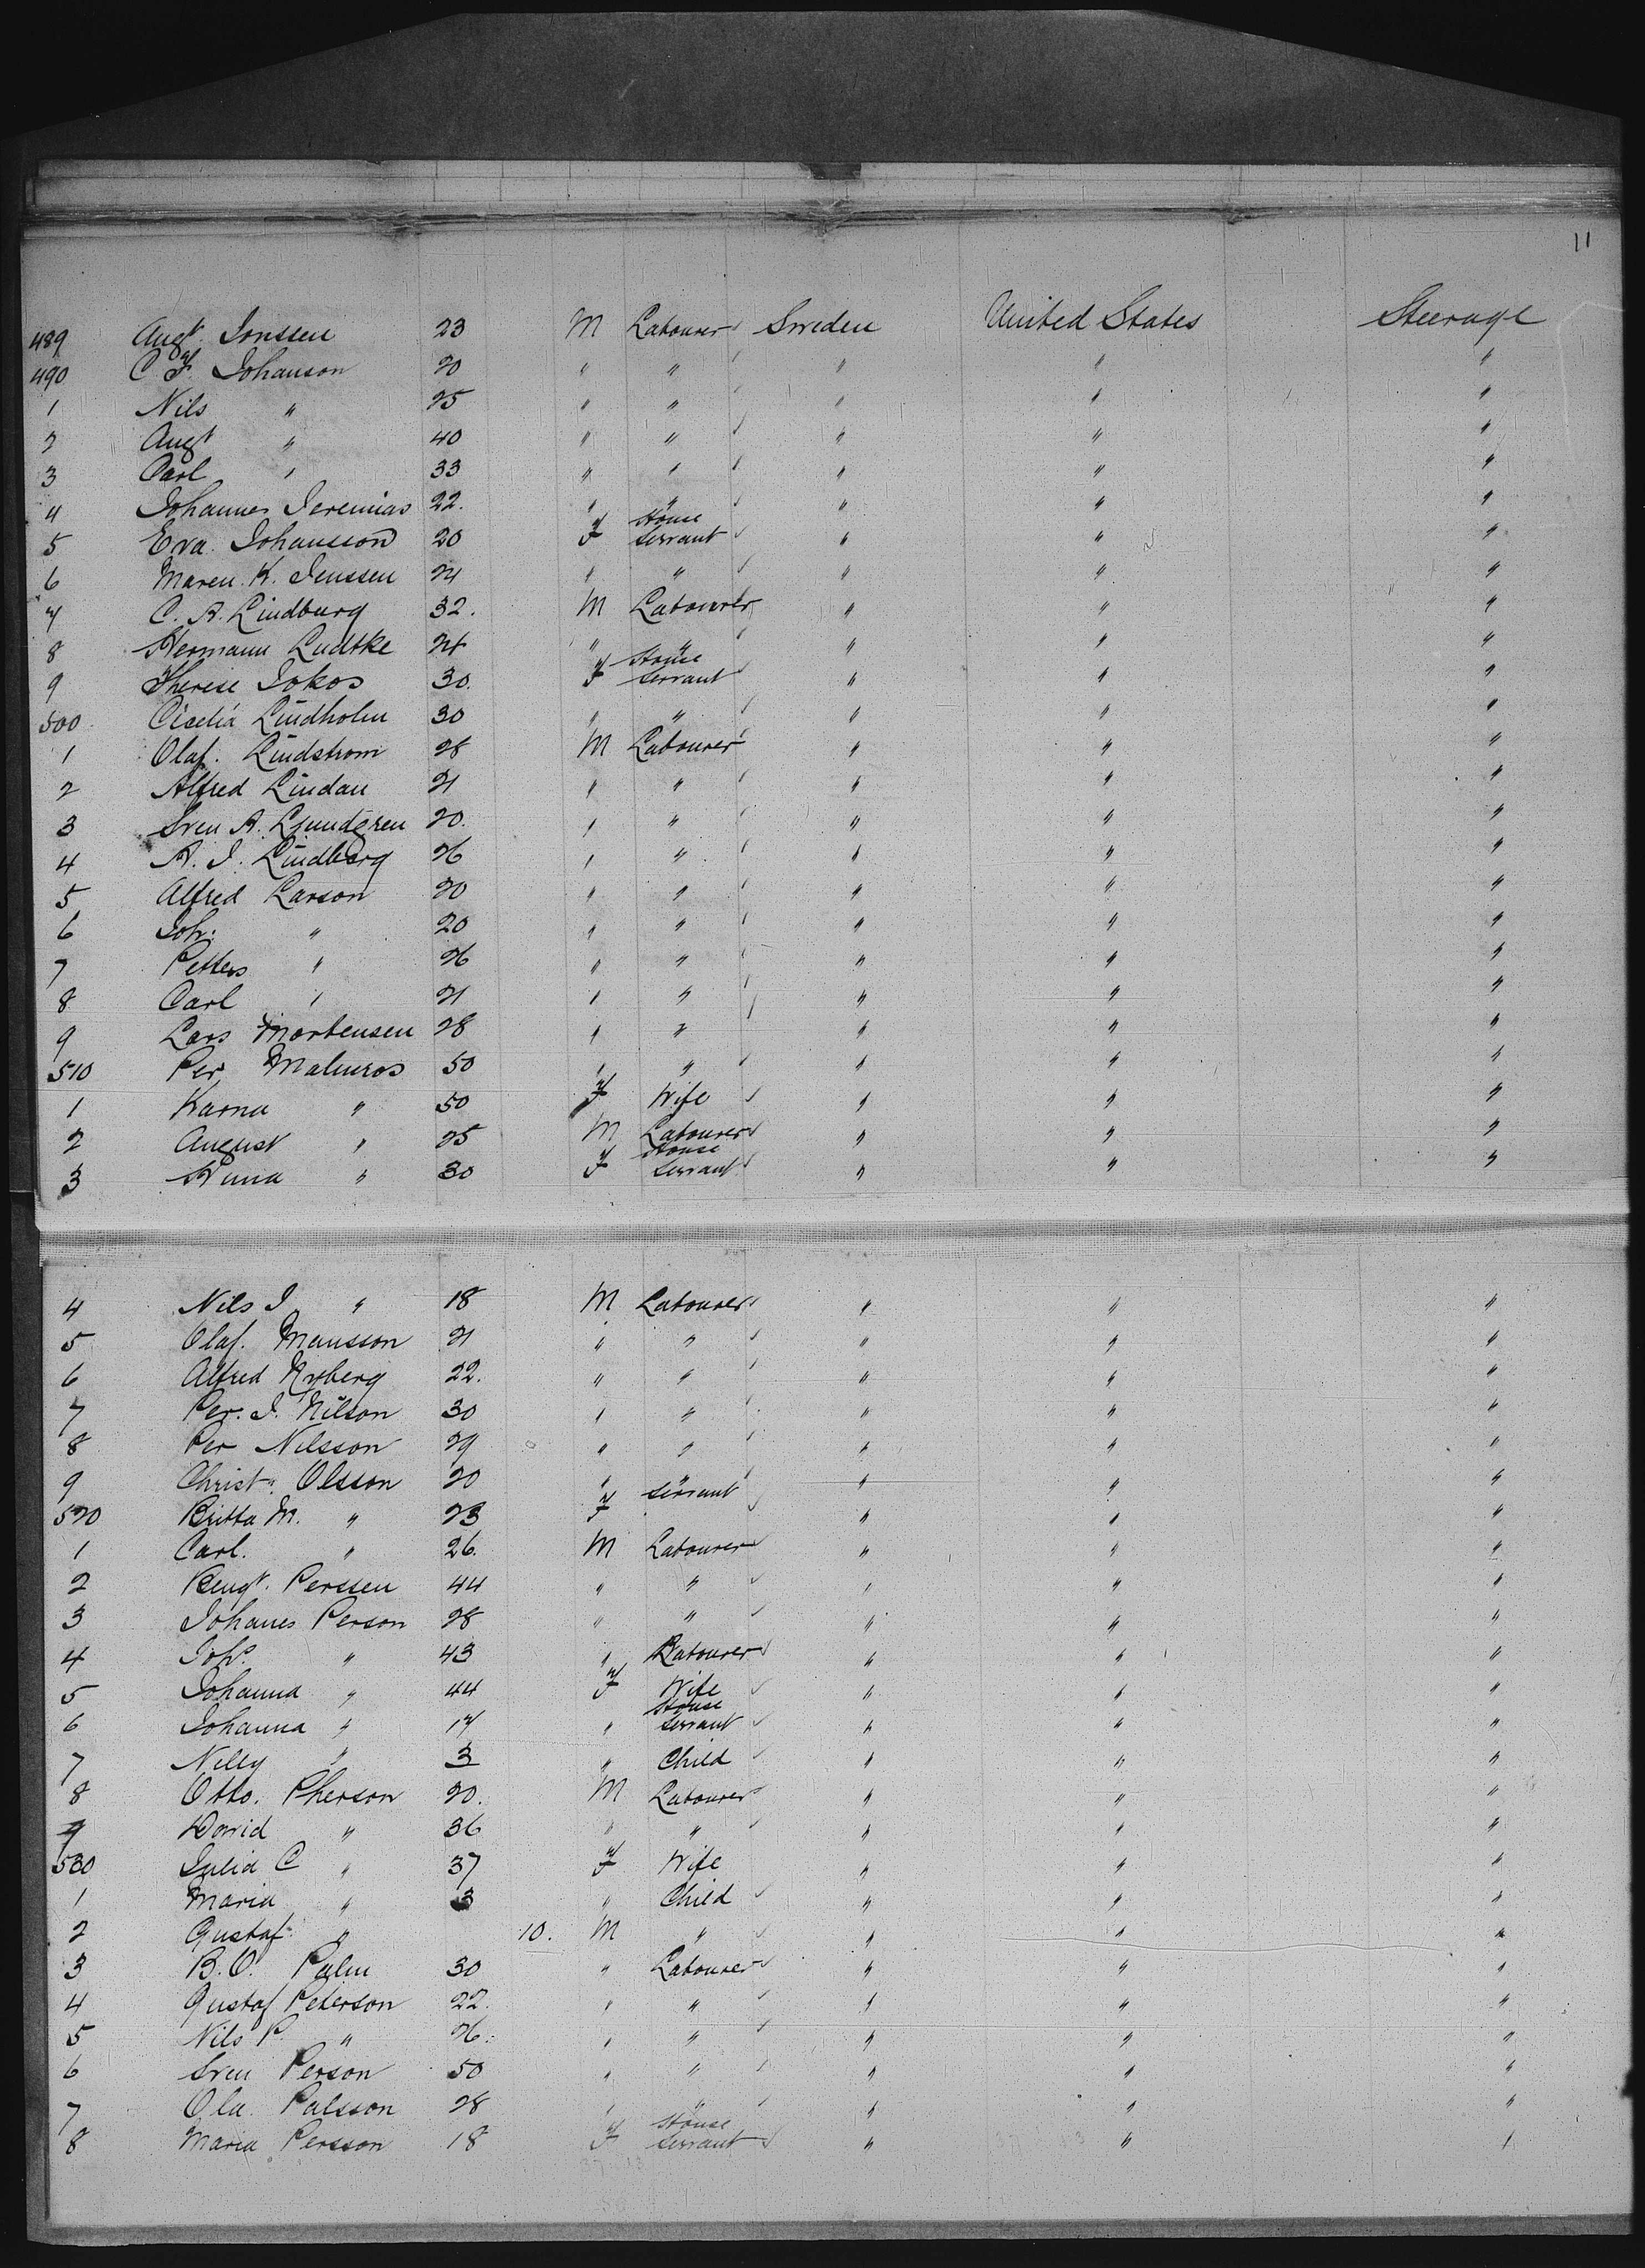 11
489 Augt Jonssen 23 M Labourer Sweden United States Steerage
490 C F. Johanson 20 " " " " "
1 Nils " 25 " " " " "
2 Augt " 40 " " " " "
3 Carl " 33 " " " " "
4 Johannes Jeremias 22. " " " " "
5 Eva Johansson 20 F House Servant " " "
6 Maren K. Jenssen 24 " " " " "
7 C. A. Lindburg 32. M Labourer " " "
8 Hermann Ludtke 24 " " " " "
9 Therese Jokos 30. F House Servant " " "
500 Cicelia Lindholm 30 " " " " "
1 Olaf. Lindstrom 28 M Labourer " " "
2 Alfred Lindau 21 " " " " "
3 Sven A. Ljundgren 20. " " " " "
4 A. J. Lindberg 26 " " " " "
5 Alfred Larson 20 " " " " "
6 Joh: " 20 " " " " "
7 Petters " 26 " " " " "
8 Carl " 21 " " " " "
9 Lars Mortensen 28 " " " " "
510 Per Malmros 50 " " " " "
1 Karna " 50 F Wife " " "
2 August " 25 M Labourer " " "
3 Anna " 30 F House Servant " " "
4 Nils J " 18 M Labourer " " "
5 Olaf. Mansson 21 " " " " "
6 Alfred Nyberg 22. " " " " "
7 Per. J. Nilson 30 " " " " "
8 Per Nilsson 29 " " " " "
9 Christ. Olsson 20 " " " " "
520 Britta M. " 23 F Servant " " "
1 Carl. " 26. M Labourer " " "
2 Bengt. Perssen 44 " " " " "
3 Johanes Person 28 " " " " "
4 Johs. " 43 " Labourer " " "
5 Johanna " 44 F Wife " " "
6 Johanna " 17 " House Servant " " "
7 Nelly " 3 " Child " " "
8 Otto. Pherson 20. M Labourer " " "
9 David " 36 " " " " "
530 Julia C " 37 F Wife " " "
1 Maria " 3 " Child " " "
2 Gustaf " 10. M " " " "
3 B. O. Palm 30 " Labourer " " "
4 Gustaf Peterson 22. " " " " "
5 Nils P. " 26. " " " " "
6 Sven Person 50 " " " " "
7 Ola Palsson 28 " " " " "
8 Maria Persson 18 F House Servant " " "